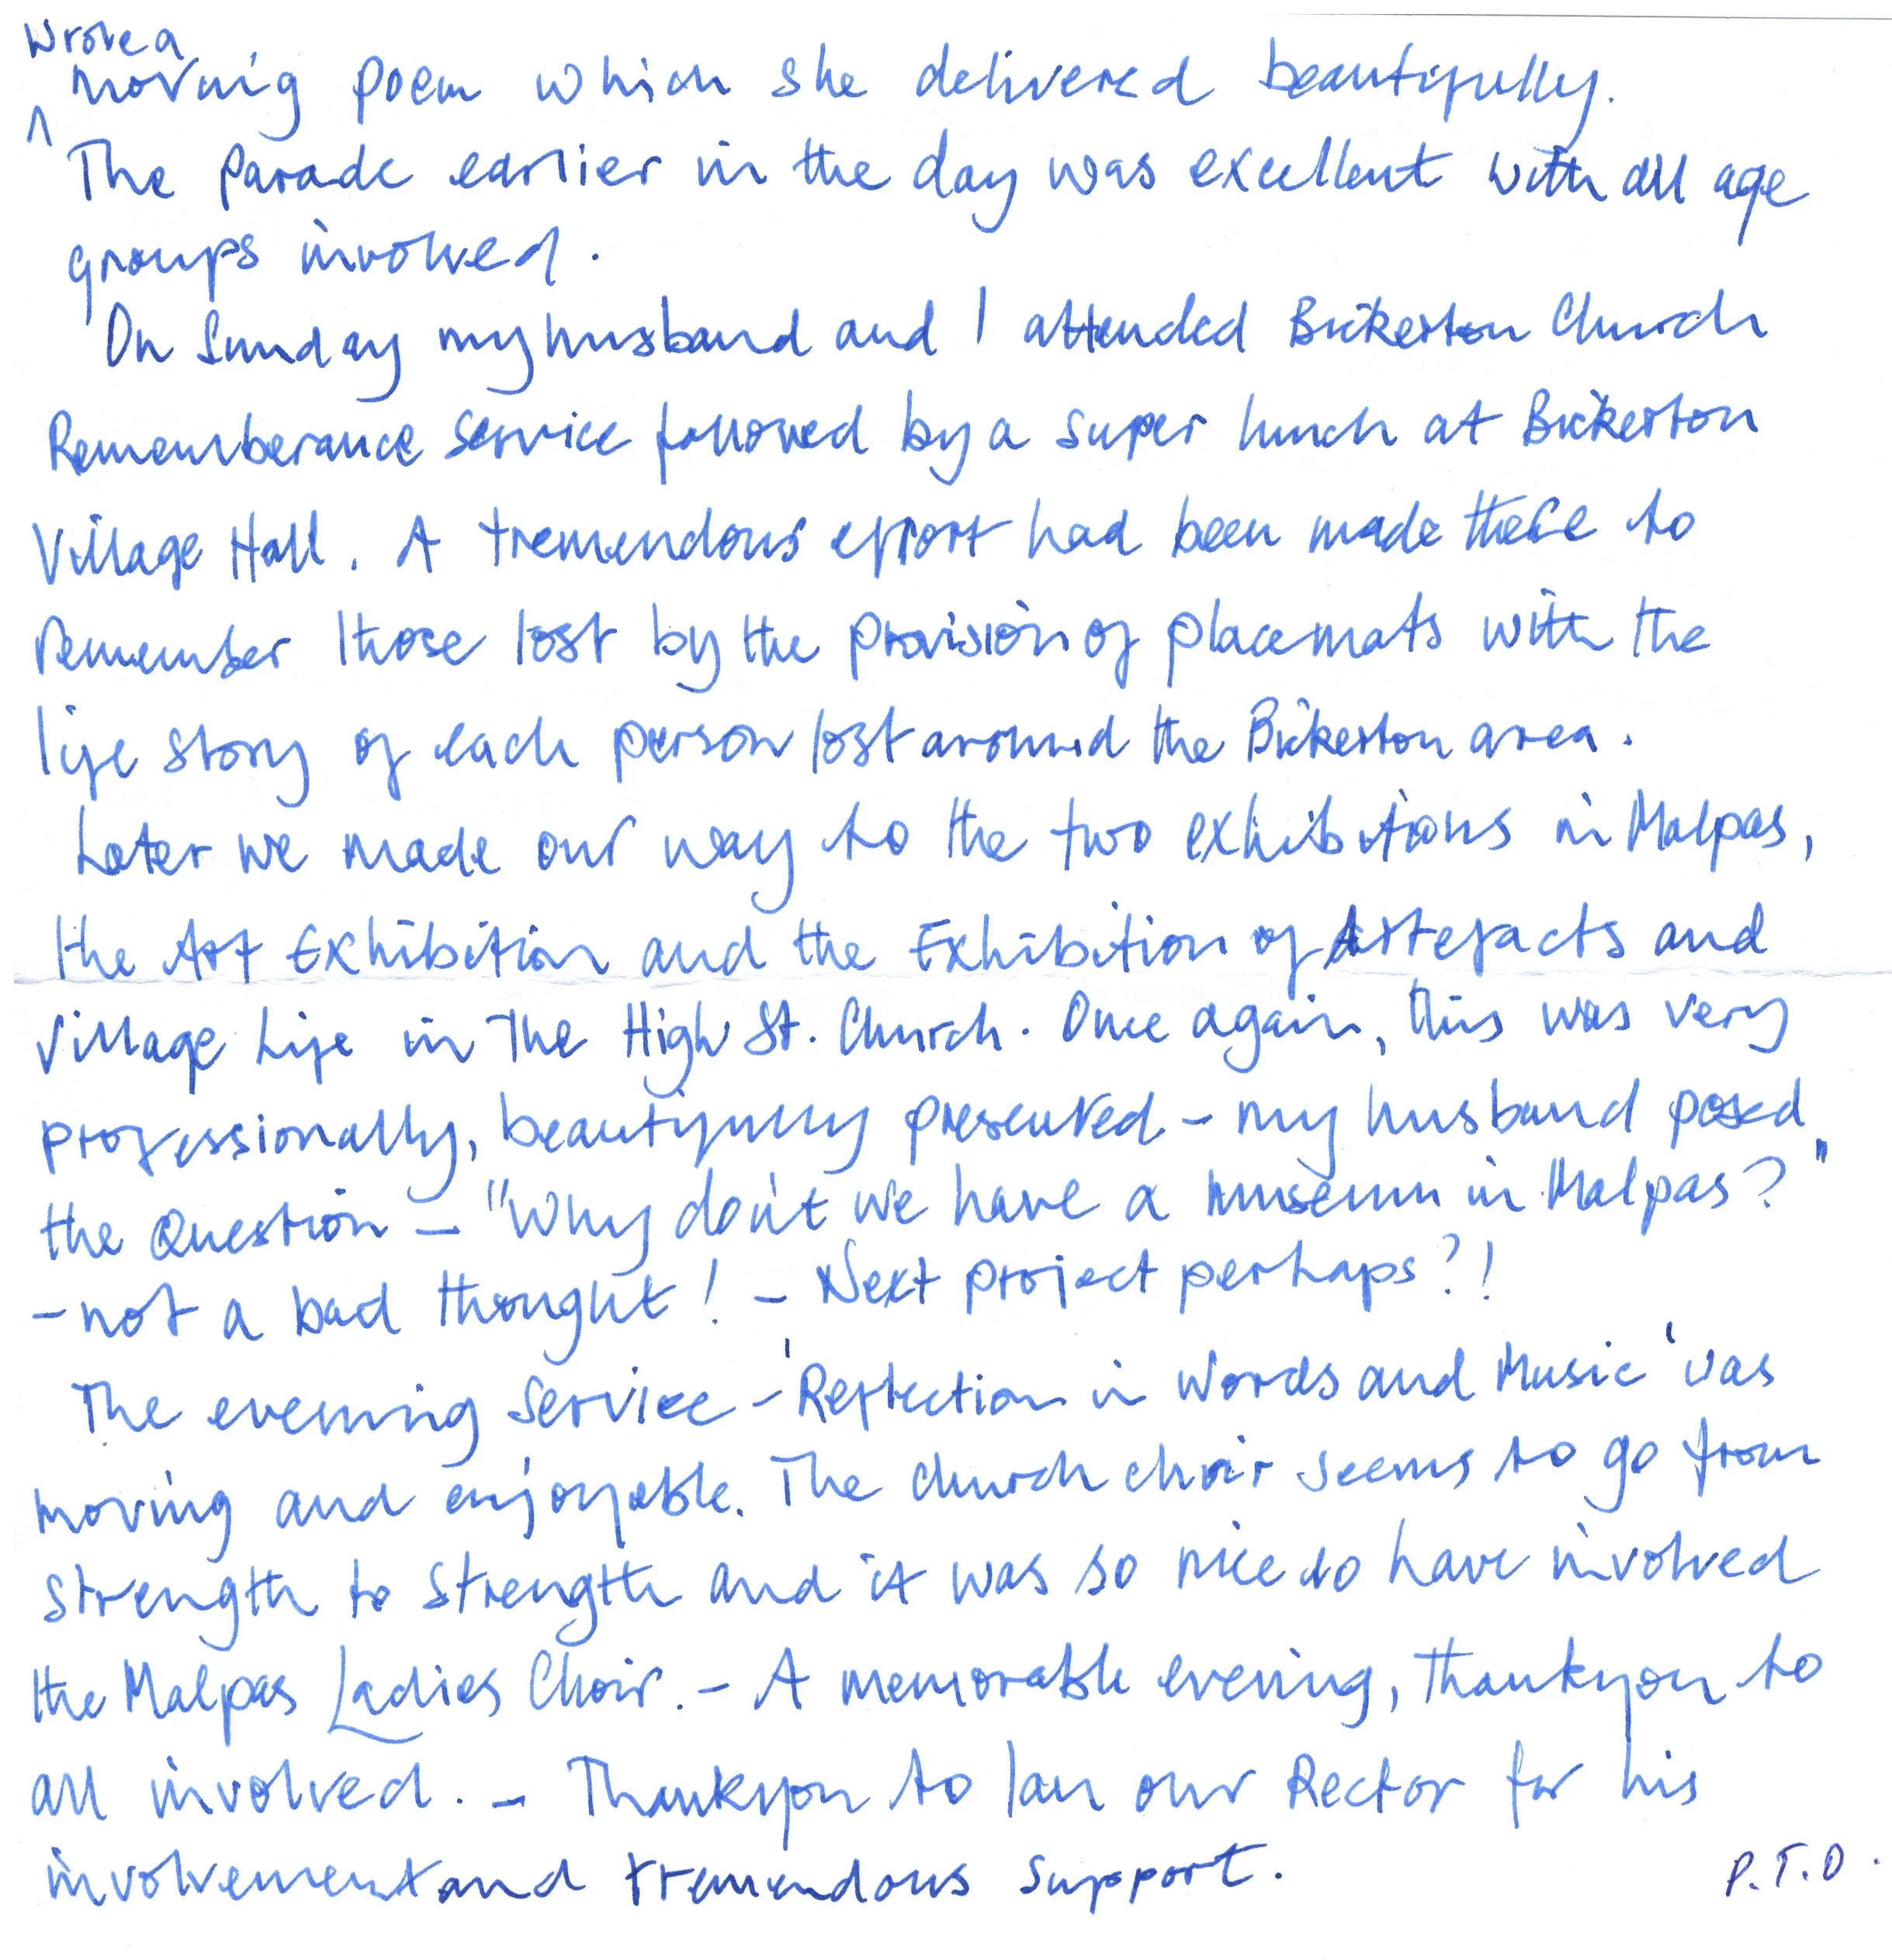 wrote a
^ moving poem which she delivered beautifully.
The Parade earlier in the day was excellent with all age
groups involved.
On Sunday my husband and I attended Bickerton Church
Rememberance Service followed by a super lunch at Bickerton
Village Hall. A tremendous effort had been made there to
remember those lost by the provision of placemats with the
life story of each person lost around the Bickerton area.
Later we made our way to the two exhibitions in Malpas,
the Art Exhibition and the Exhibition of Artefacts and
Village Life in The High St. Church. Once again, this was very
professionally, beautifully presented - my husband posed
the Question - "Why don't we have a museum in Malpas?"
- not a bad thought! - Next project perhaps?!
The evening Service - 'Reflection in Words and Music' was
moving and enjoyable. The church choir seems to go from
strength to strength and it was so nice to have involved
the Malpas Ladies Choir. - A memorable evening, thankyou to
all involved. - Thankyou to Ian our Rector for his
involvement and tremendous support.
P.T.O.